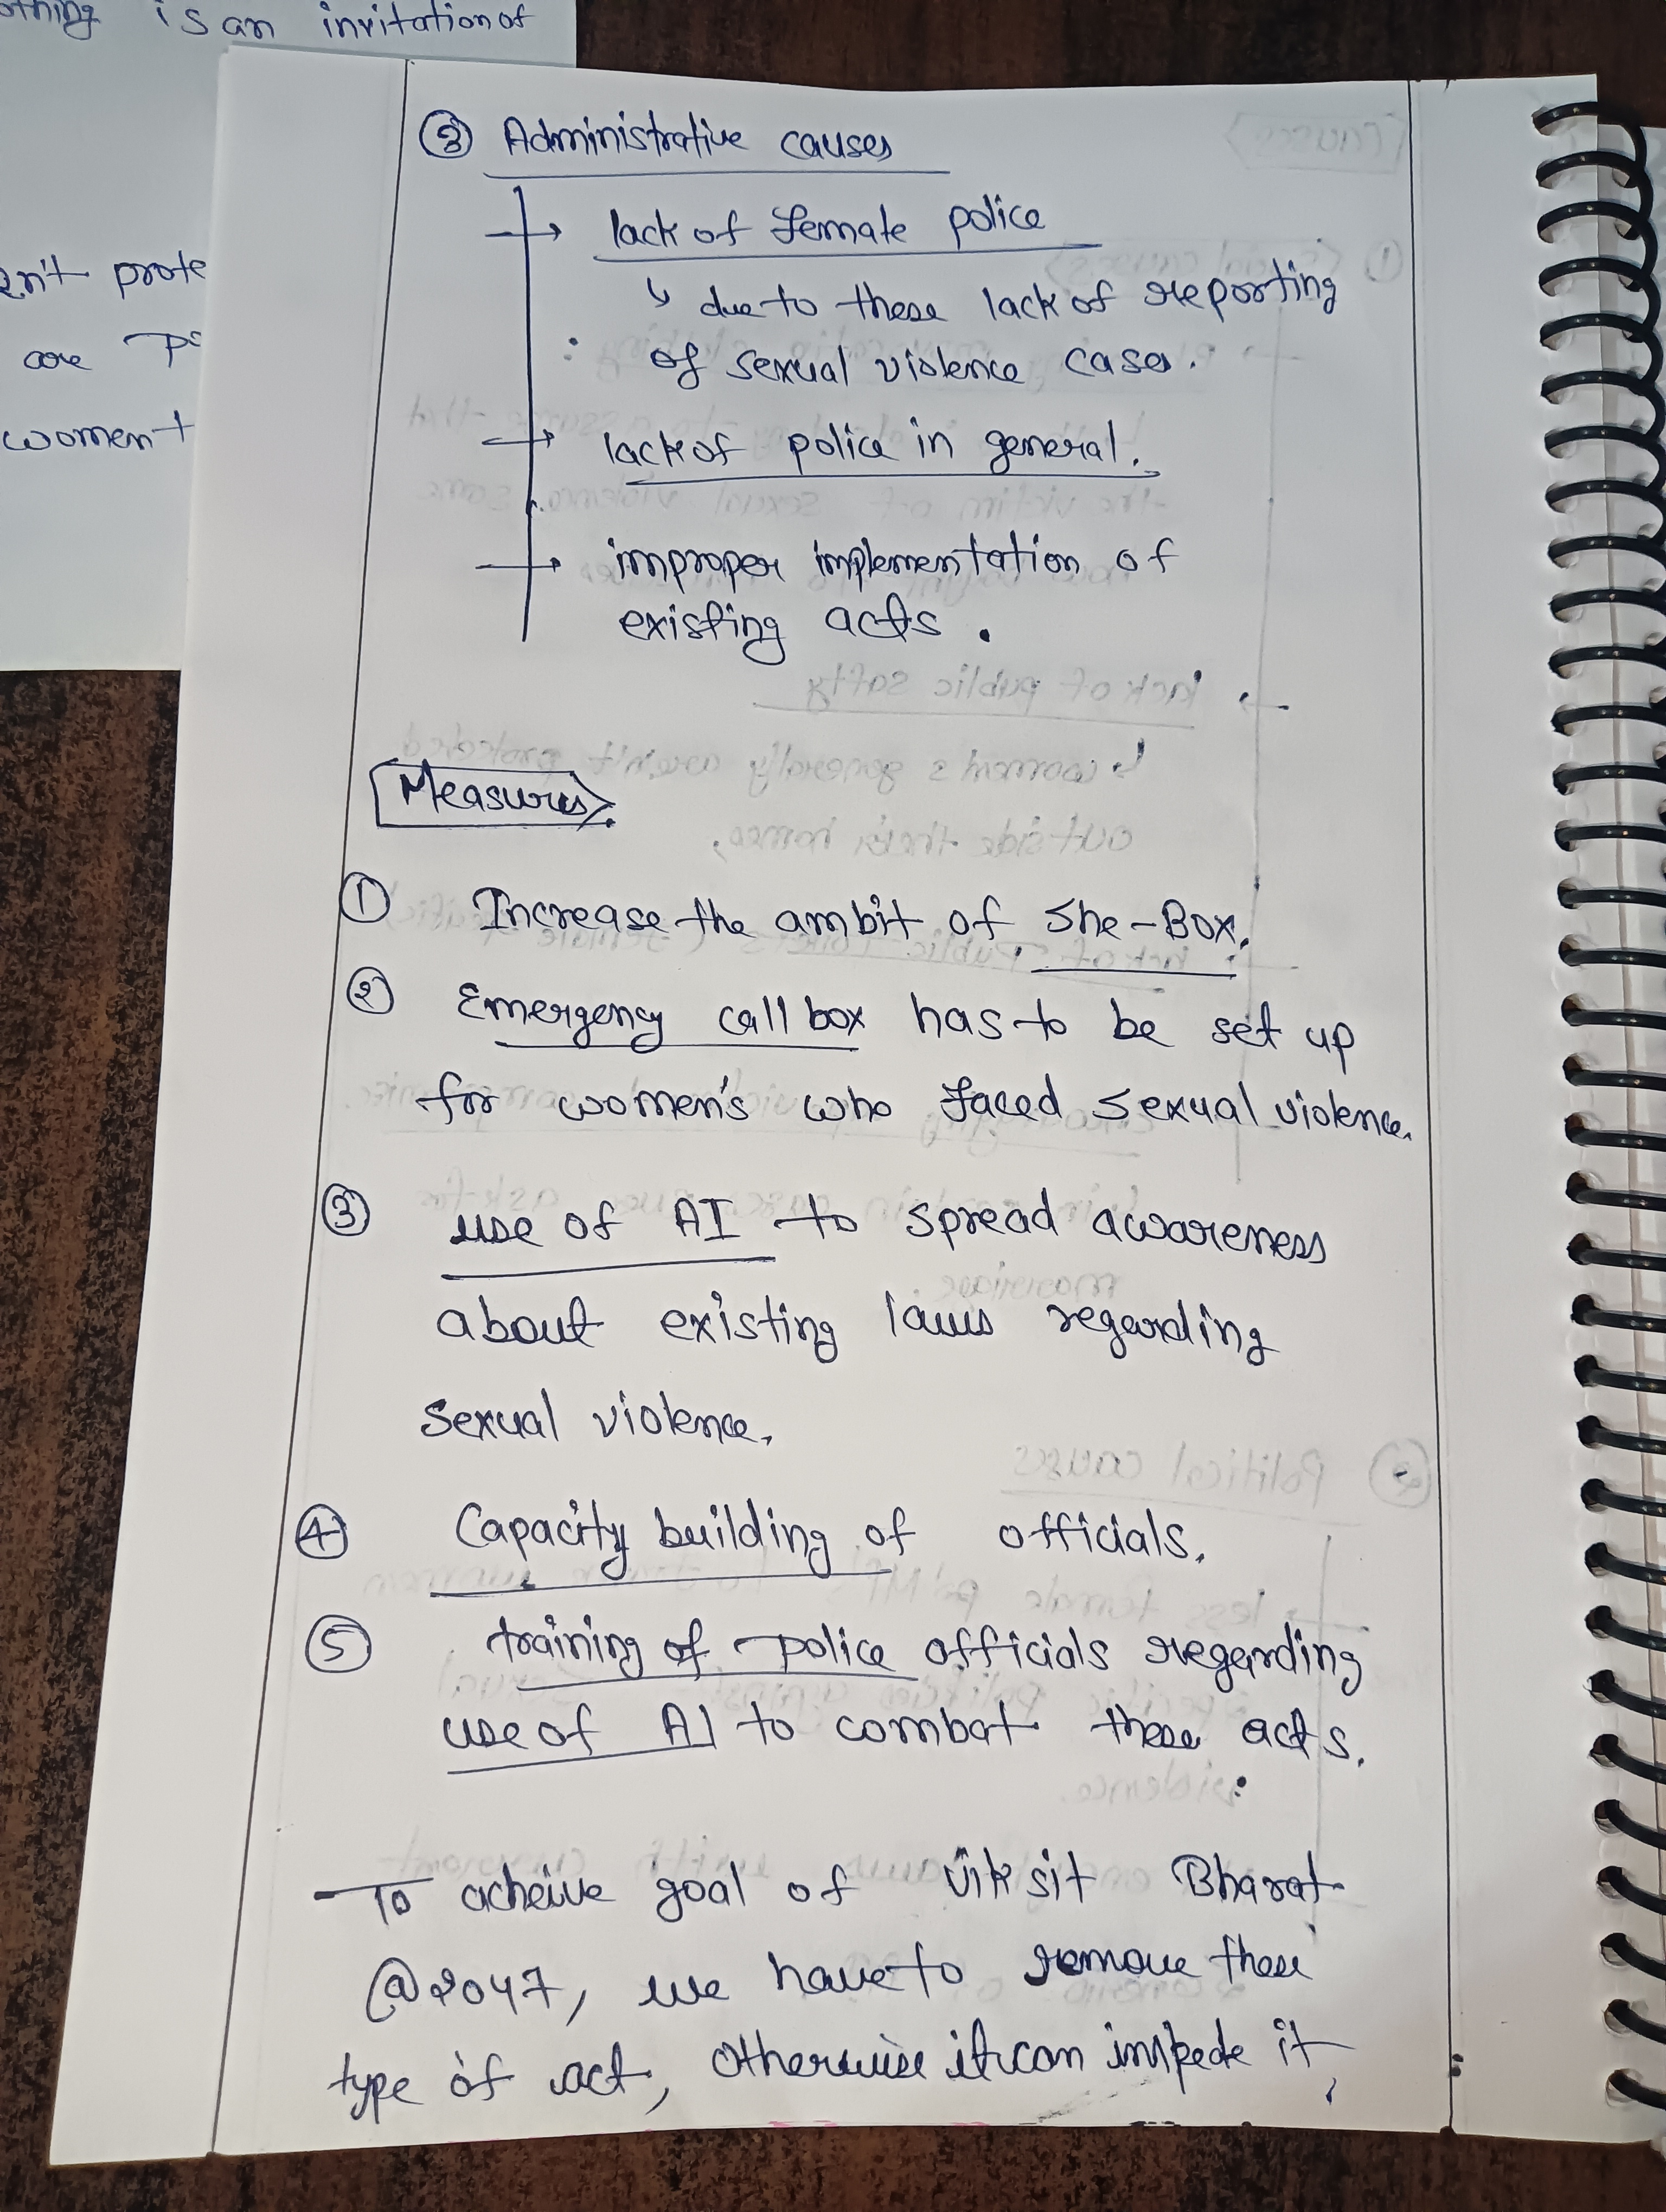 is an invitation of
en't prote
are
women
③ Administrative causes
→ lack of female police
↳ due to these lack of reporting
of sexual violence case.
→ lack of police in general.
→ improper implementation of
existing acts.
Measures
① Increase the ambit of She-Box.
② Emergency call box has to be set up
for women's who faced sexual violence.
③ use of AI to spread awareness
about existing laws regarding
sexual violence.
④ Capacity building of officials.
⑤ training of police officials regarding
use of AI to combat these acts.
To acheive goal of Viksit Bharat
@2047, we have to remove these
type of act, otherwise it can impede it.